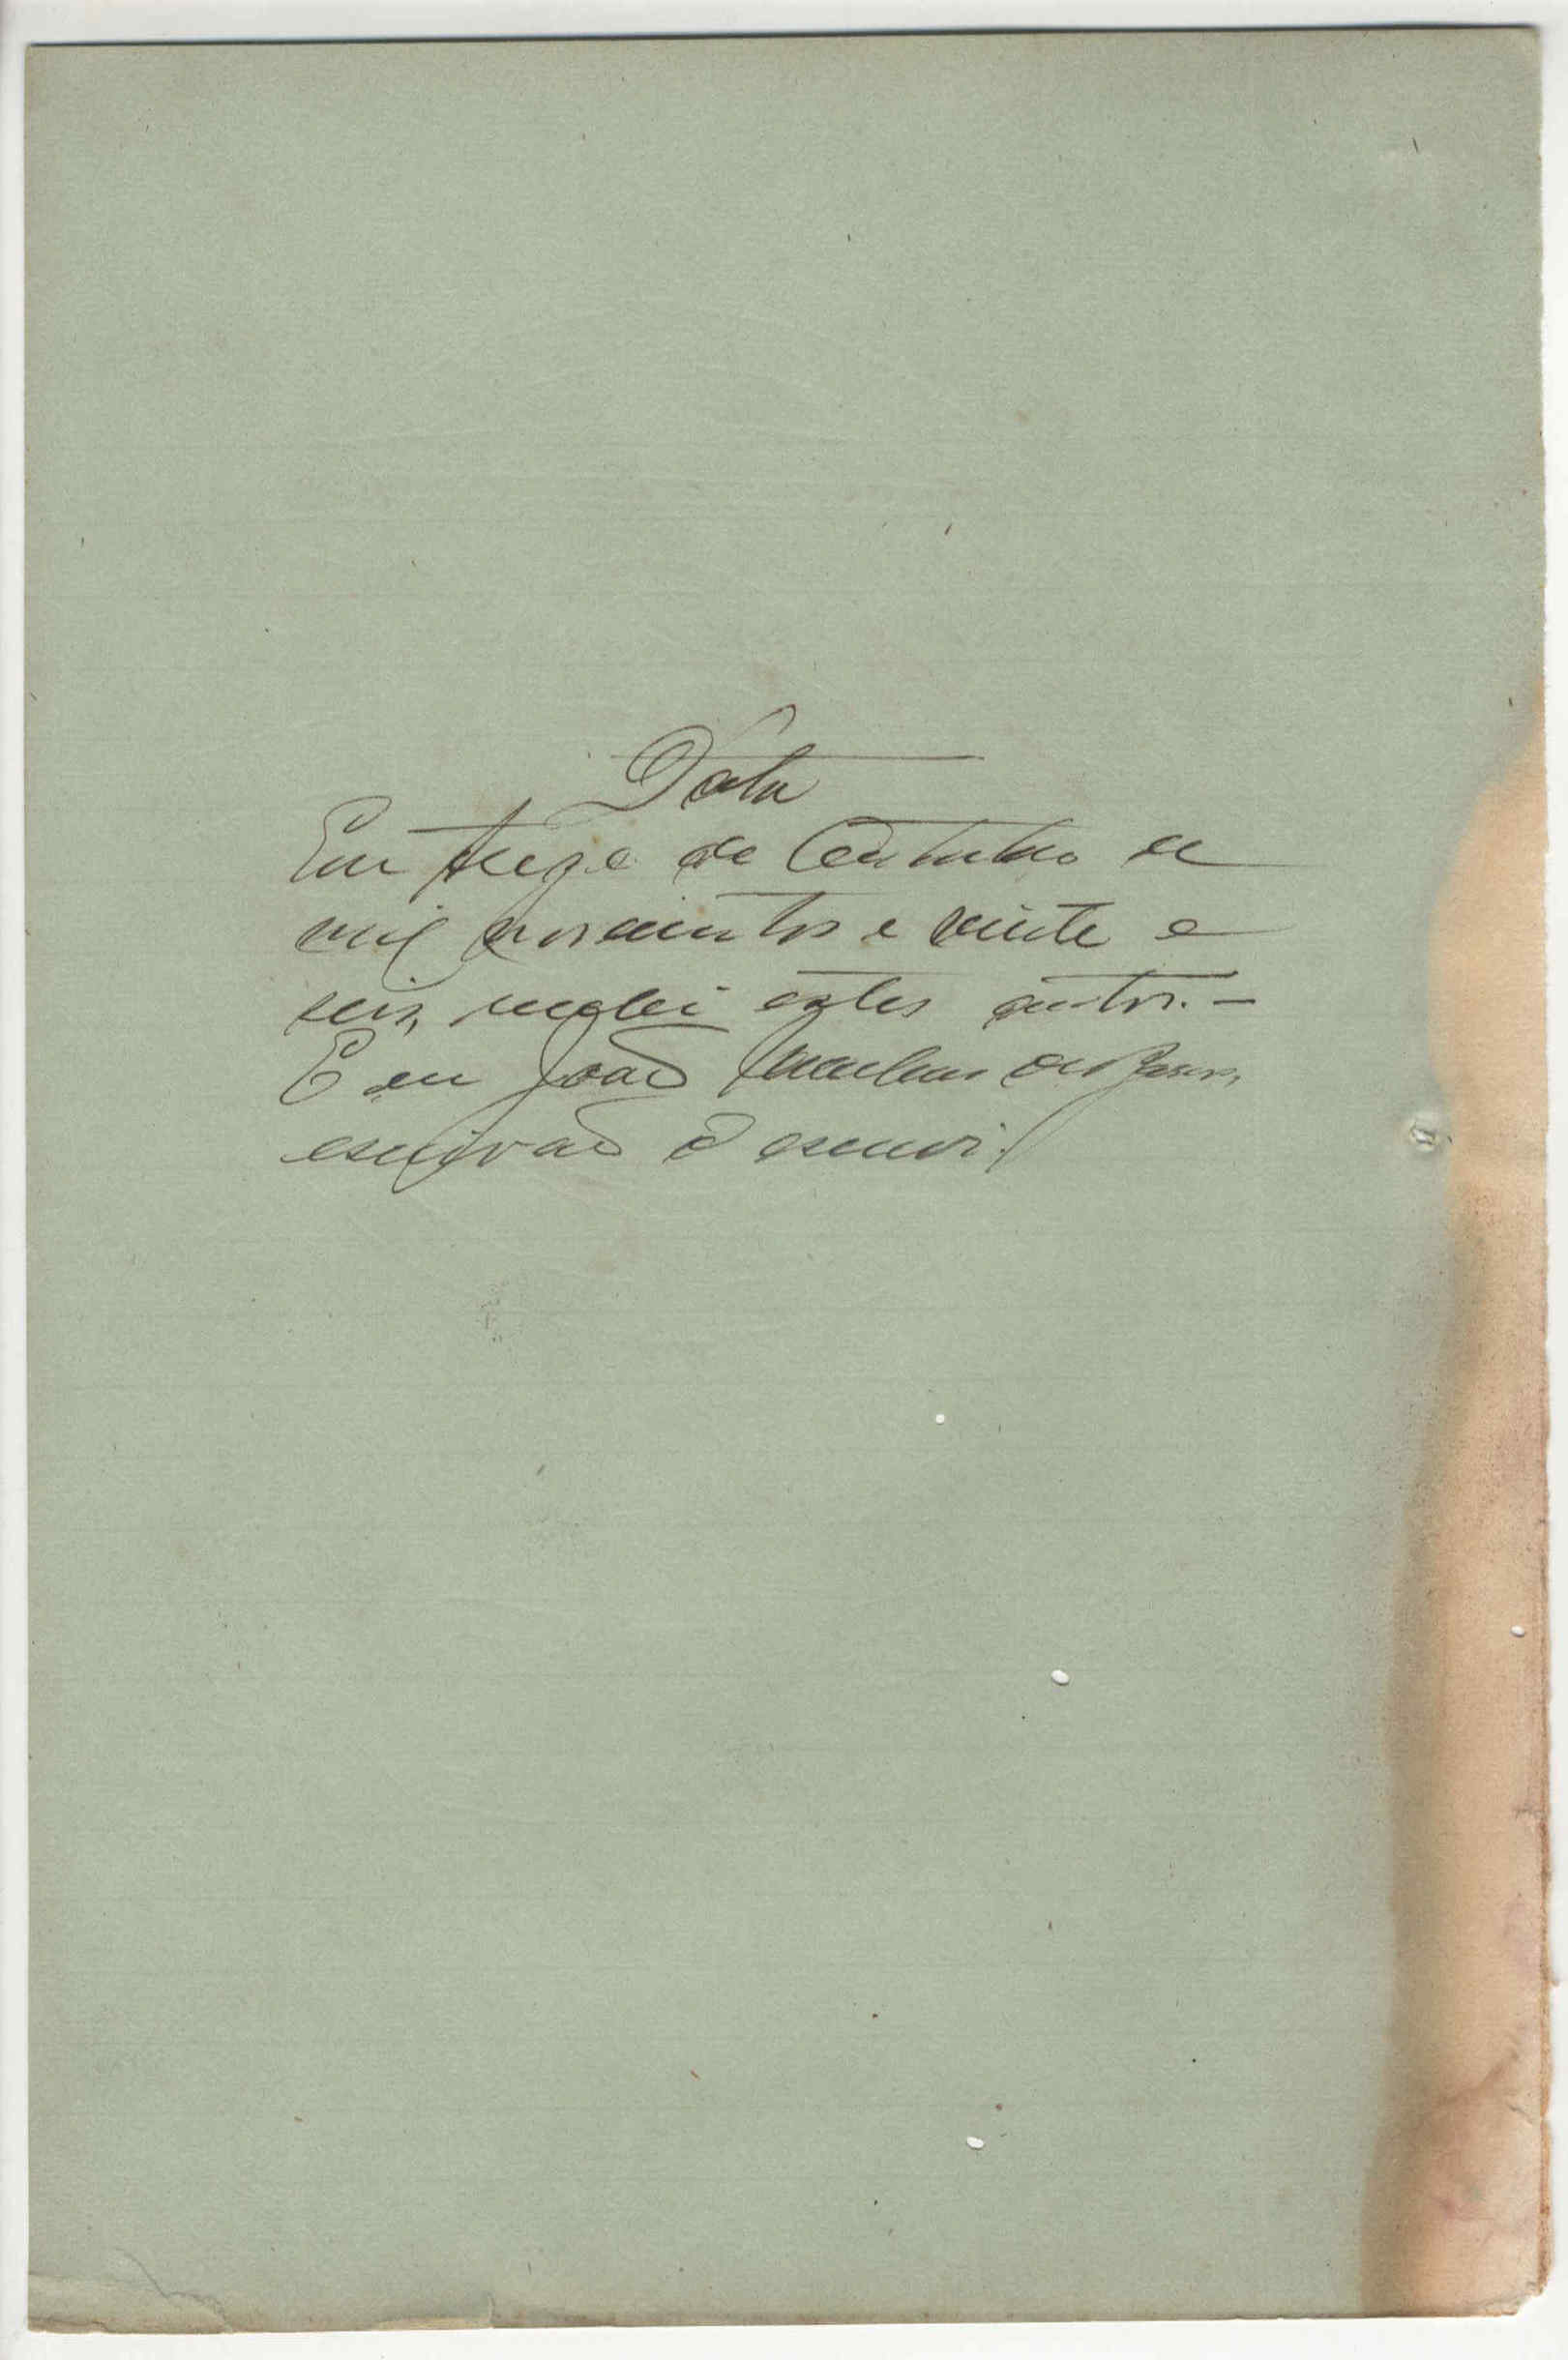 Data
Em treze de Outubro de
mil novecentos e vinte e
seis, recebi estes autos. –
E eu João
escrivão o escrevi.